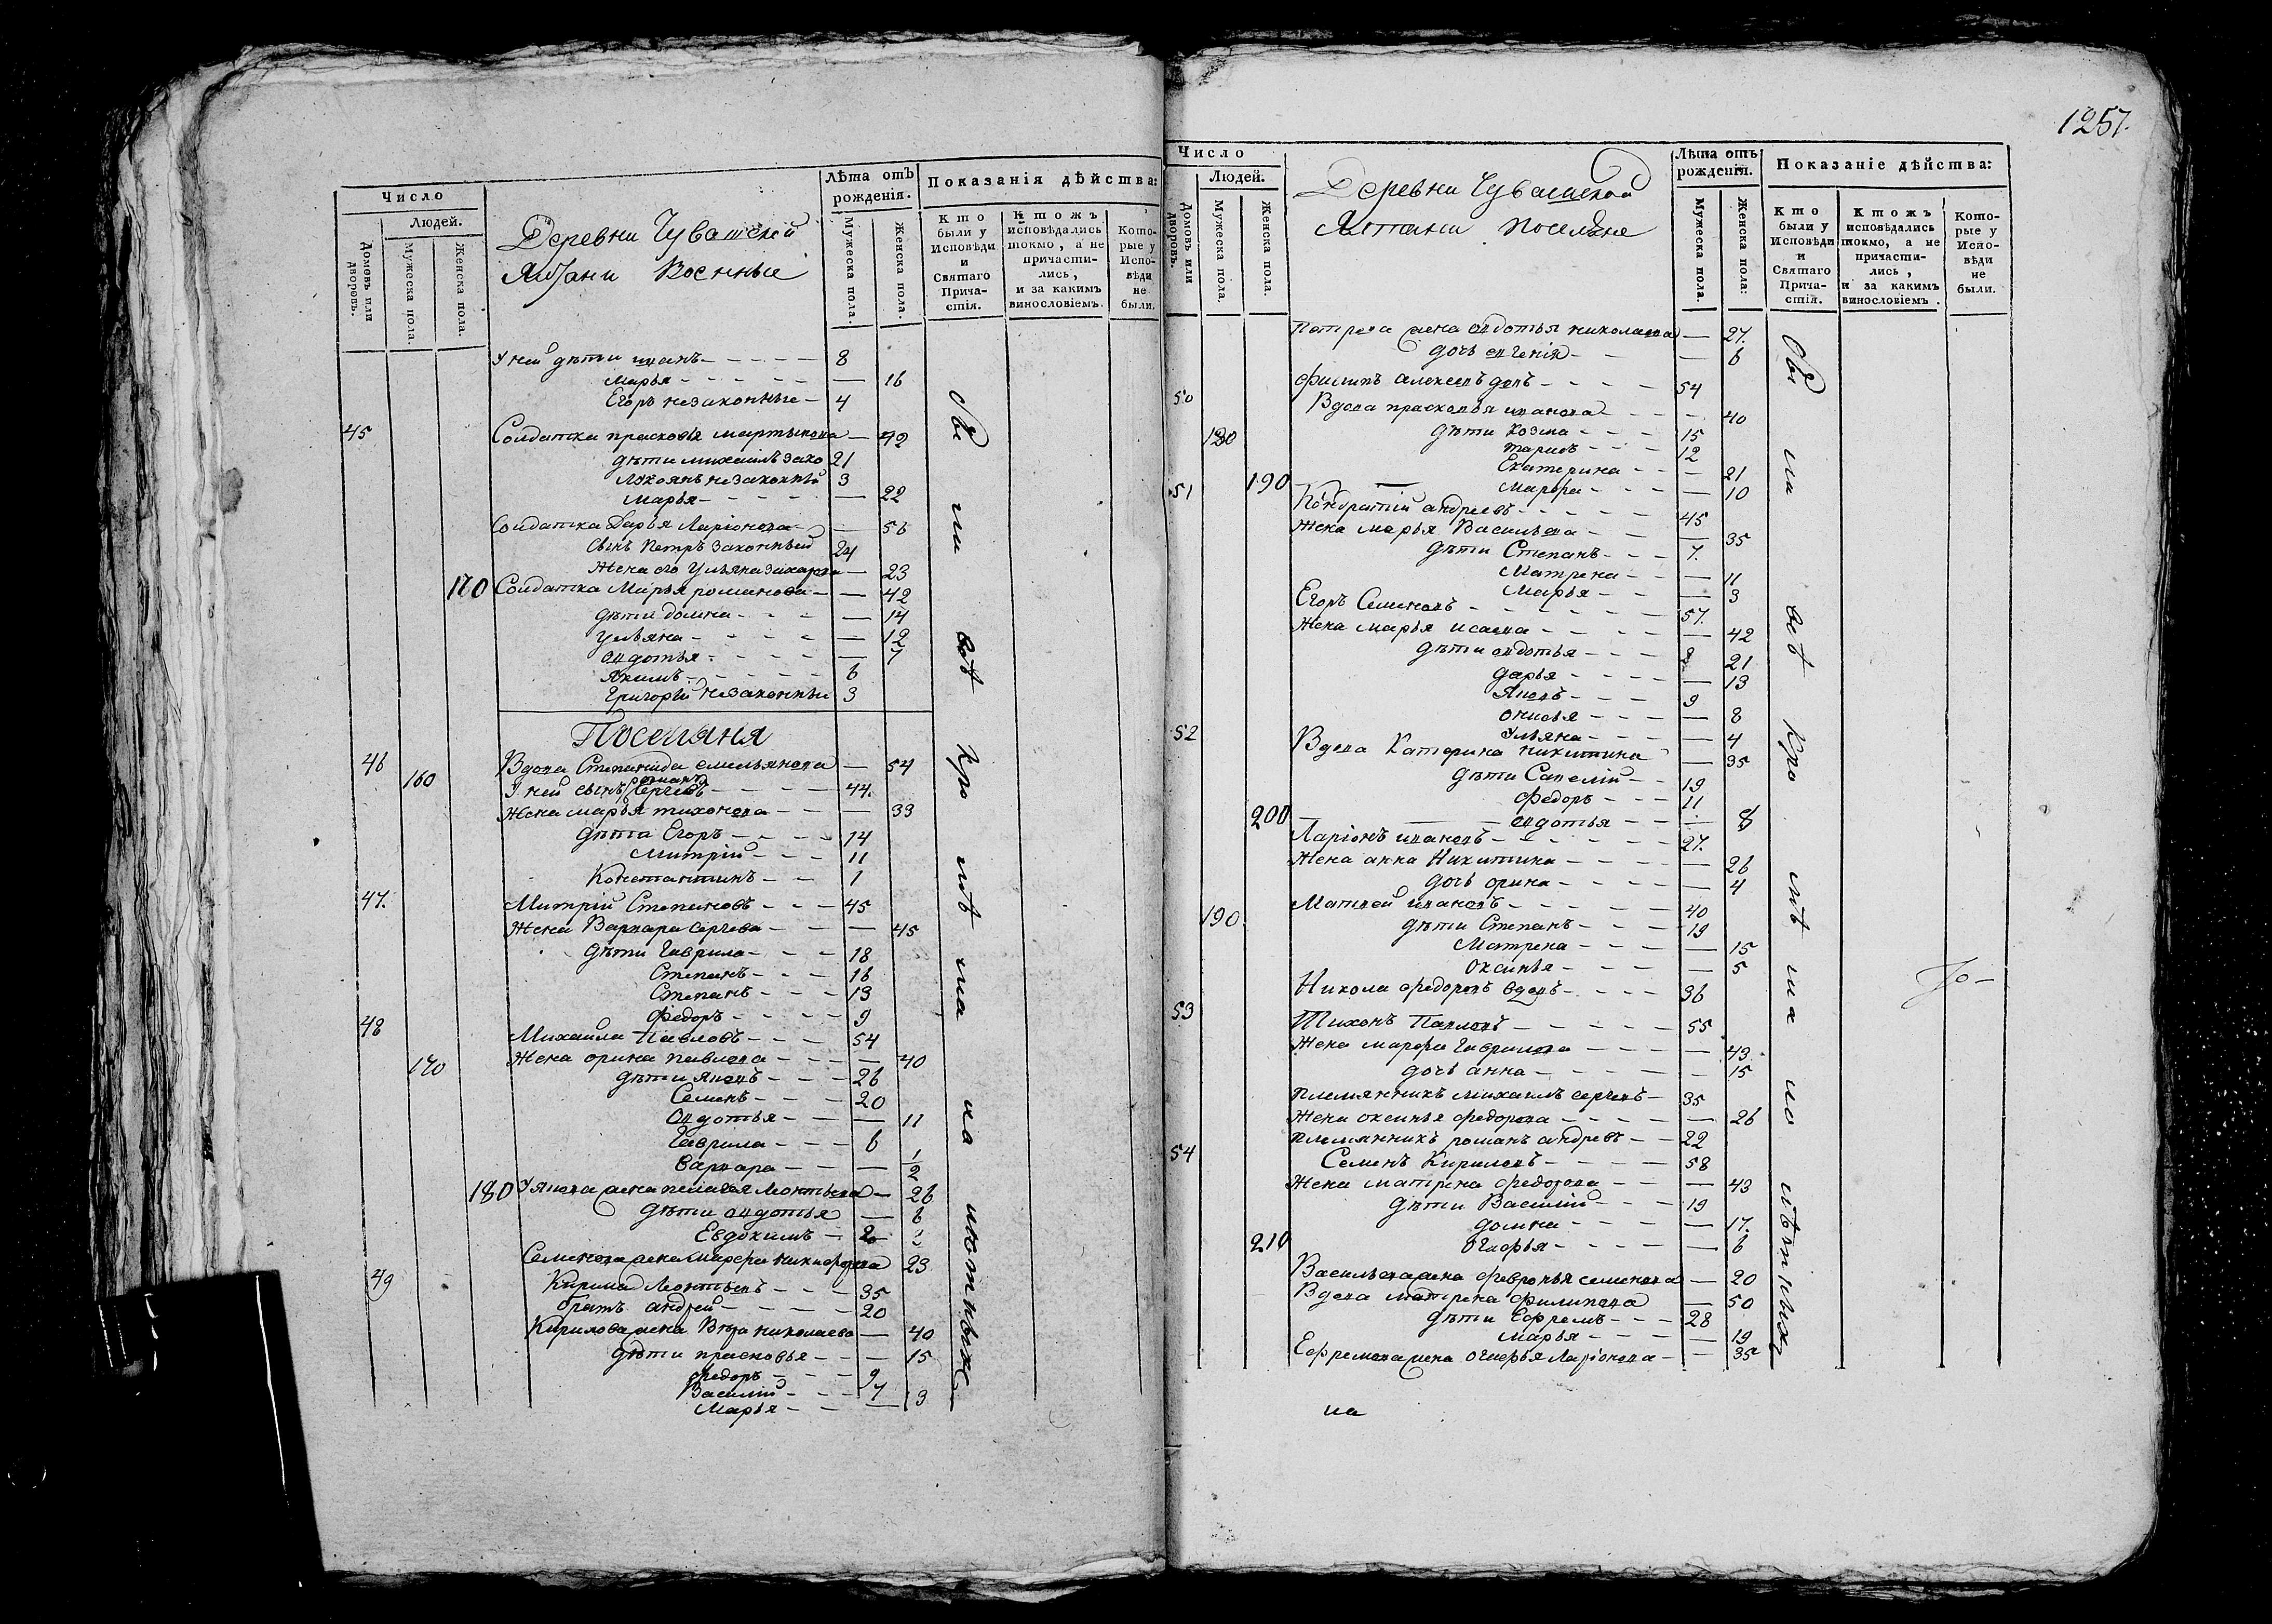 Число
Людей.
Домовъ или дворовъ.
Мужеска пола.
Женска пола.
Деревни Чувашской
Лѣта отъ рожденія.
Мужеска пола.
Женска пола.
Показанія дѣйства:
Кто были у Исповѣди и Святаго Причастія.
Ктожъ исповѣдались токмо, а не причастились, и за какимъ винословіемъ.
Которые у Исповѣди не были.
Военные
У ней дѣти иванъ - 8
Марья - — 16
Егоръ незаконные - 4
45 Солдатка прасковья мартынова — 42
дѣти михаилъ зако 21
незаконный 3
Марья - — 22
Солдатка Дарья Ларіонова - — 56
Сынъ Петръ законный 24
Жена его Ульяна захарова — 23
170 Солдатка Марья романова - — 42
дѣти домна - — 14
Ульяна - — 12
авдотья - — 7
Якимъ - 6
Григорей незаконные 3
Поселяня
46 Вдова Степанида емельянова — 54
160 У ней сынъ Сергеевъ - 44.
Жена марья тихонова - — 33
дѣти Егоръ - 14
Митрій - 11
Константинъ - 1
47. Митрій Степановъ - 45
Жена Варвара Сергеева - — 45
дѣти Гаврила - 18
Степанъ - 16
Степанъ - 13
Федоръ - 9
48 Михаила Павловъ - 54
Жена орина павлова - — 40
170 дѣти яковъ - 26
Семенъ - 20
Авдотья - — 11
Гаврила - 6
варвара - — 2
180 Якова жена пелагея Леонтьева - 26
дѣти авдотья — 6
Евдокимъ - 2
Семенова жена Марфа никифорова 23
49 Кирила Леонтьевъ - 35
братъ андрей - 20
Кирилова жена Вера николаева — 40
дѣти прасковья - — 15
федоръ - 9
Василій - 7
Марья - — 3
всѣ
1257.
Число
Людей.
Домовъ или дворовъ.
Мужеска пола.
Женска пола.
Деревни Чувашской
поселяне
Лѣта отъ рожденія.
Мужеска пола.
Женска пола:
Показаніе дѣйства:
Кто были у Исповѣди и Святаго Причастія.
Ктожъ исповѣдались токмо, а не причастились, и за какимъ винословіемъ.
Которые у Исповѣди не были.
Петрова жена авдотья николаева — 27.
дочь евгенія - — 6
50 филипъ алексеевъ вдовъ - 54
Вдова прасковья иванова - - 40
180 дѣти козма - 15
12
Екатерина - — 21
51 190 Марфа - — 10
Кондратій андреевъ - 45
Жена марья Васильева - — 35
дѣти Степанъ - 7.
Матрена - — 11
Марья - — 3
Егоръ Семеновъ - 57.
Жена марья исаева - — 42
дѣти авдотья - 21
дарья - — 13
Яковъ - 9
— 8
52 Ульяна - — 4
Вдова Катерина никитина — 35
дѣти Савелій - 19
Федоръ - 11
200 авдотья - — 8
Ларіонъ ивановъ - 27.
Жена анна Никитина - — 26
дочь орина - — 4
190 Матвей ивановъ - 40
дѣти Степанъ - 19
Матрена - — 15
Оксинья - — 5
Никола федоровъ вдовъ - 36
53 Тихонъ Павловъ - 55
Жена марфа Гаврилова - — 43
дочь анна - — 15
Племянникъ михаилъ сергеевъ - 35
Жена оксинья федорова - — 26
племянникъ романъ андревъ - 22
54 Семенъ Кириловъ - 58
Жена матрена федорова - — 43
дѣти Василій - 19
домна - — 17.
210 огафья - — 6
Васильева жена февронья семенова — 20
Вдова матрена филипова — 50
дѣти Ефремъ - 28
марья - — 19
Ефремова жена огафья Ларіонова - — 35
всѣ